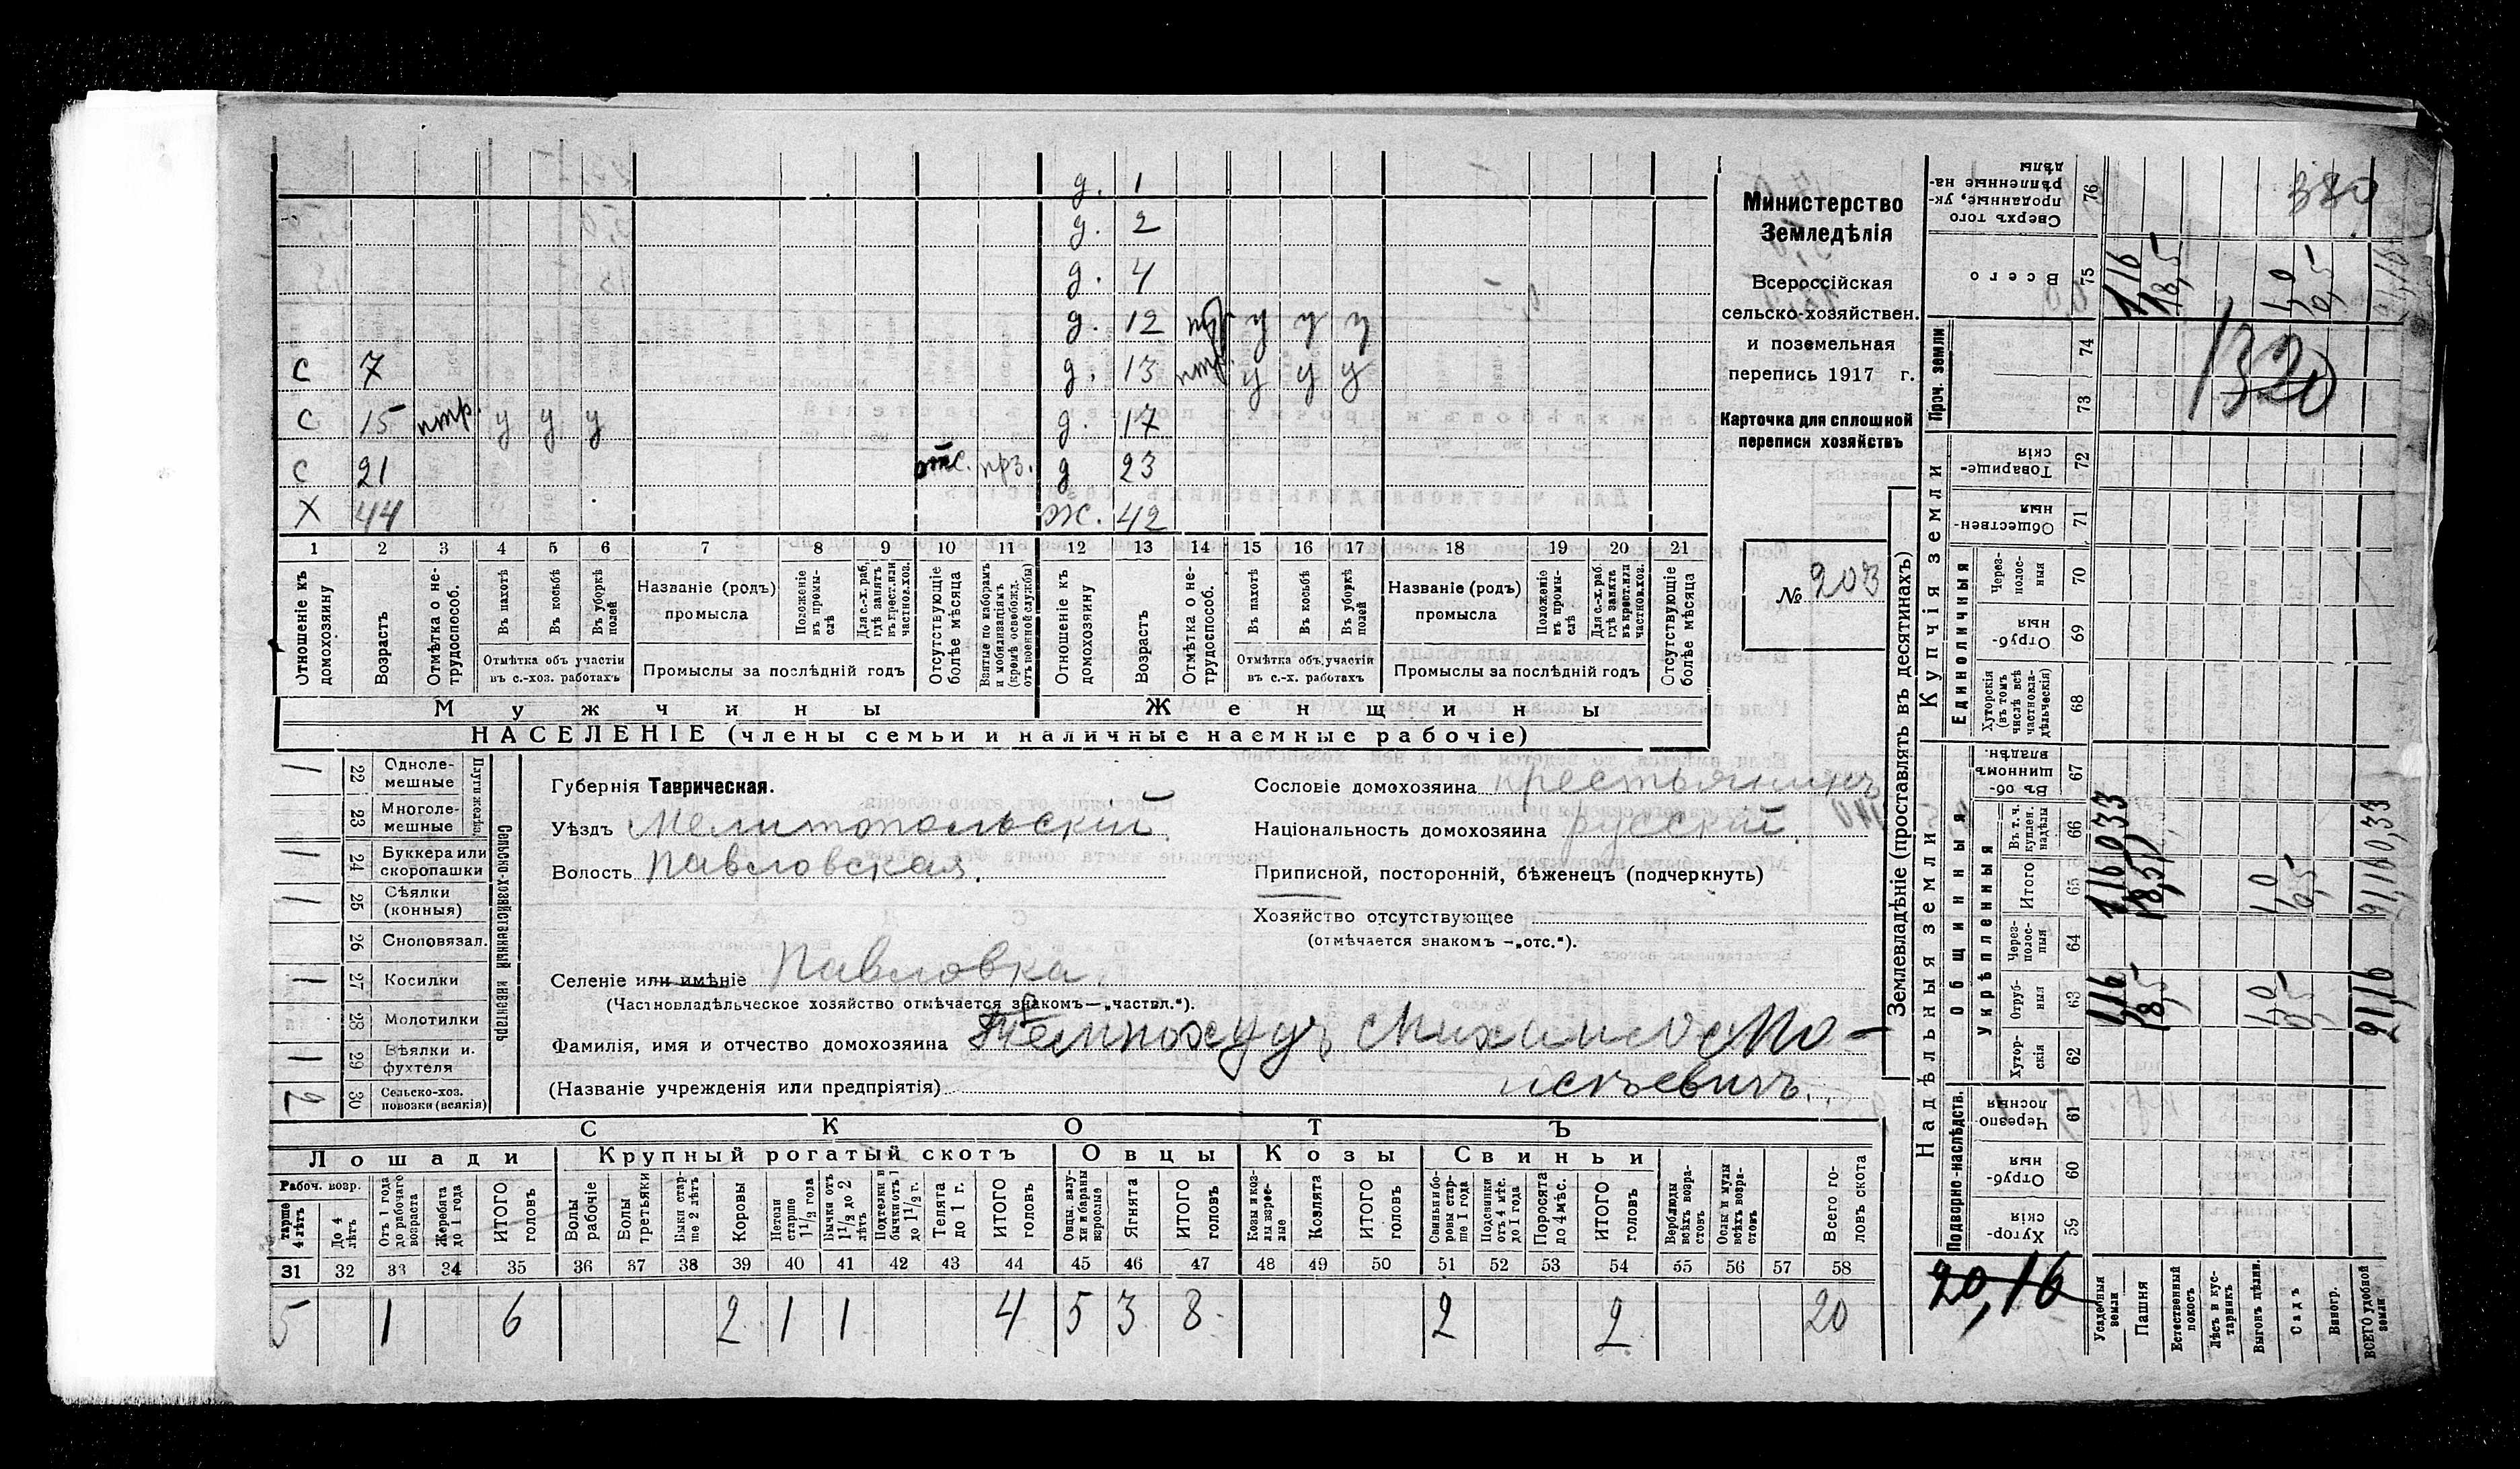 д. 1
д. 2
д. 4
д. 12 птр. у у у
с 7 д. 13 птр. у у у
с 15 птр. у у у д. 17
с 21 отс. прз. д 23
Х 44 ж. 42
1 2 3 4 5 6 7 8 9 10 11 12 13 14 15 16 17 18 19 20 21
Отношеніе къ домохозяину
Возрастъ
Отмѣтка о не-трудоспособ.
Въ пахотѣ
Въ косьбѣ
Въ уборкѣ полей
Отмѣтка объ участіи въ с.-хоз. работахъ
Названіе (родъ) промысла
Положеніе въ промы-слѣ
Для с.-х. раб. гдѣ занятъ въ крест. или частнов. хоз.
Промыслы за послѣдній годъ
Отсутствующіе болѣе мѣсяца
Взятые по наборамъ и мобилизаціямъ (кромѣ освобожд. отъ военной службы)
Отношеніе къ домохозяину
Возрастъ
Отмѣтка о не-трудоспособ.
Въ пахотѣ
Въ косьбѣ
Въ уборкѣ полей
Отмѣтка объ участіи въ с.-х. работахъ
Названіе (родъ) промысла
Положеніе въ промы-слѣ
Для с.-х. раб. гдѣ занята въ крест. или частнов. хоз.
Промыслы за послѣдній годъ
Отсутствующіе болѣе мѣсяца
Мужчины Женщины
НАСЕЛЕНІЕ (члены семьи и наличные наемные рабочіе)
Министерство
Земледѣлія
Всероссійская
сельско-хозяйствен.
и поземельная
перепись 1917 г.
Карточка для сплошной
переписи хозяйствъ
№ 203
Сельско-хозяйственный инвентарь
Плуги желѣз.
Однолемешные 22 1
Многолемешные 23
Буккера или скоропашки 24 1
Сѣялки (конныя) 25 1
Сноповязал. 26
Косилки 27 1
Молотилки 28
Вѣялки и фухтеля 29 1
Сельско-хоз. повозки (всякія) 30 2
Губернія Таврическая.
Уѣздъ Мелитопольскій
Волость Павловская.
Селеніе или имѣніе Павловка.
(Частновладѣльческое хозяйство отмѣчается знакомъ—„частвл.“).
Фамилія, имя и отчество домохозяина Михаилъ Мо-
(Названіе учрежденія или предпріятія) исѣевичъ.
Сословіе домохозяина крестьянинъ
Національность домохозяина русскій.
Приписной, посторонній, бѣженецъ (подчеркнуть)
Хозяйство отсутствующее
(отмѣчается знакомъ —„отс.“).
СКОТЪ
Лошади Крупный рогатый скотъ Овцы Козы Свиньи
Рабоч. возр.
старше 4 лѣтъ
До 4 лѣтъ
Отъ 1 года до рабочаго возраста
Жеребята до 1 года
ИТОГО головъ
Волы рабочіе
Волы третьяки
Быки стар-ше 2 лѣтъ
Коровы
Нетели старше 1½ года
Бычки отъ 1½ до 2 лѣтъ
Подтелки и бычки отъ 1 до 1½ г.
Телята до 1 г.
ИТОГО головъ
Овцы, валу-хи и бараны взрослые
Ягнята
ИТОГО головъ
Козы и коз-лы взрос-лые
Козлята
ИТОГО головъ
Свиньи и бо-ровы стар-ше 1 года
Подсвинки отъ 4 мѣс. до 1 года
Поросята до 4 мѣс.
ИТОГО головъ
Верблюды всѣхъ возра-стовъ
Ослы и мулы всѣхъ возра-стовъ
Всего го-ловъ скота
31 32 33 34 35 36 37 38 39 40 41 42 43 44 45 46 47 48 49 50 51 52 53 54 55 56 57 58
5 1 6 2 1 1 4 5 3 8 2 2 20
Землевладѣніе (проставлять въ десятинахъ)
Надѣльныя земли Купчія земли Проч. земли
Подворно-наслѣдств. Общинныя Укрѣпленныя Единоличныя
Хутор-скія 59
Отруб-ныя 60
Черезпо-лосныя 61
Хутор-скія 62
Отруб-ныя 63
Через-полос-ныя 64
Итого 65
Въ т. ч. куплен. надѣлы 66
Въ об-щинномъ владѣн. 67
Хуторскія (въ томъ числѣ всѣ частновла-дѣльческія) 68
Отруб-ныя 69
Через-полос-ныя 70
Обществен-ныя 71
Товарище-скія 72
73 74
Всего 75
Сверхъ того проданные, ук-рѣпленные на-дѣлы 76
Усадебныя земли
Пашня
Естественный покосъ
Лѣсъ и кус-тарникъ
Выгонъ цѣлин.
Садъ
Виногр.
ВСЕГО удобной земли
20,16
1,16
18,5
21,16
1320
380